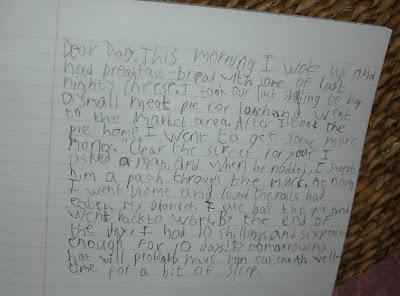 Dear Diary, This morning I woke up and
had breakfast-bread with some of last
nights cheese. I took our last shilling to buy
a small meat pie for lunch and went
to the market area. After I took the
pie home I went to get some more
mony. "Clear the street for you" I
asked a man, and when he nodded, I swept
him a path through the muck. At noon
I went home and found the rails had
eaten my blanket. I ate half the pie and
went back to work. By the end of
the day, I had 10 shillings and sixpence
enough for 10 days! By tomorrow my
hat will probably have ben eaten oh well-
time for a bit of sleep.